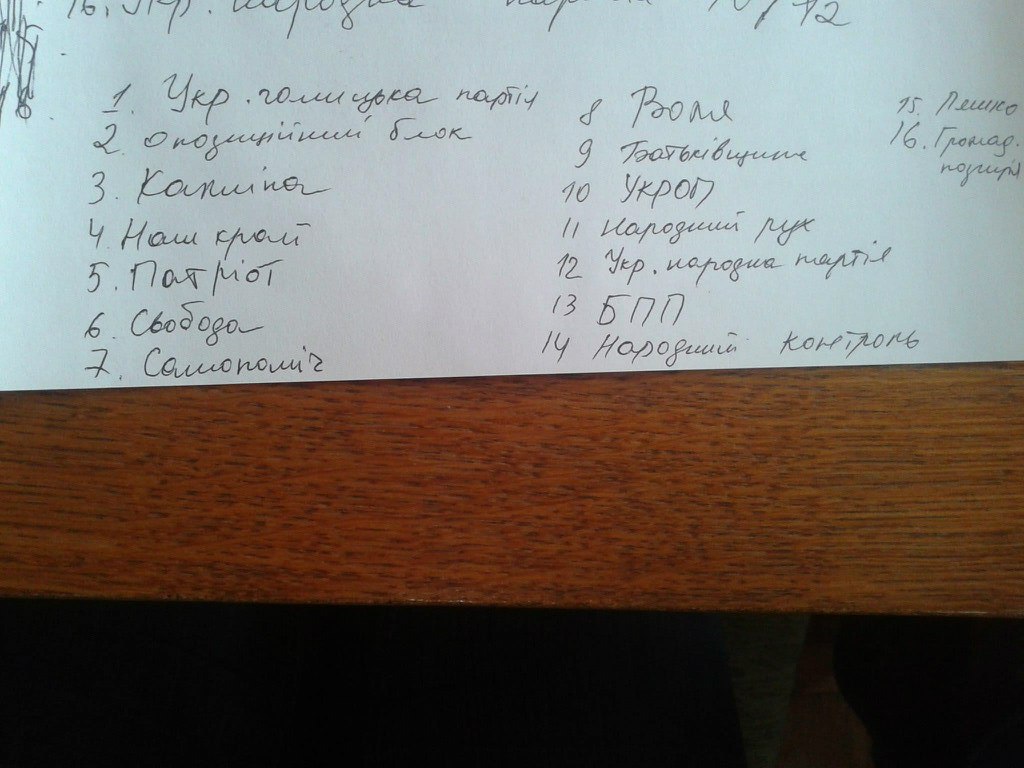 16. Укр. народна партія 10/12
1. Укр. галицька партія
2. Опозиційний блок
3. Капліна
4 Наш край
5. Патріот
6. Свобода
7. Самопоміч
8 Воля
9 Батьківщина
10 УКРОП
11 Народний рух
12 Укр. народна партія
13 БПП
14 Народний контроль
15. Ляшко
16. Громад.
позиція